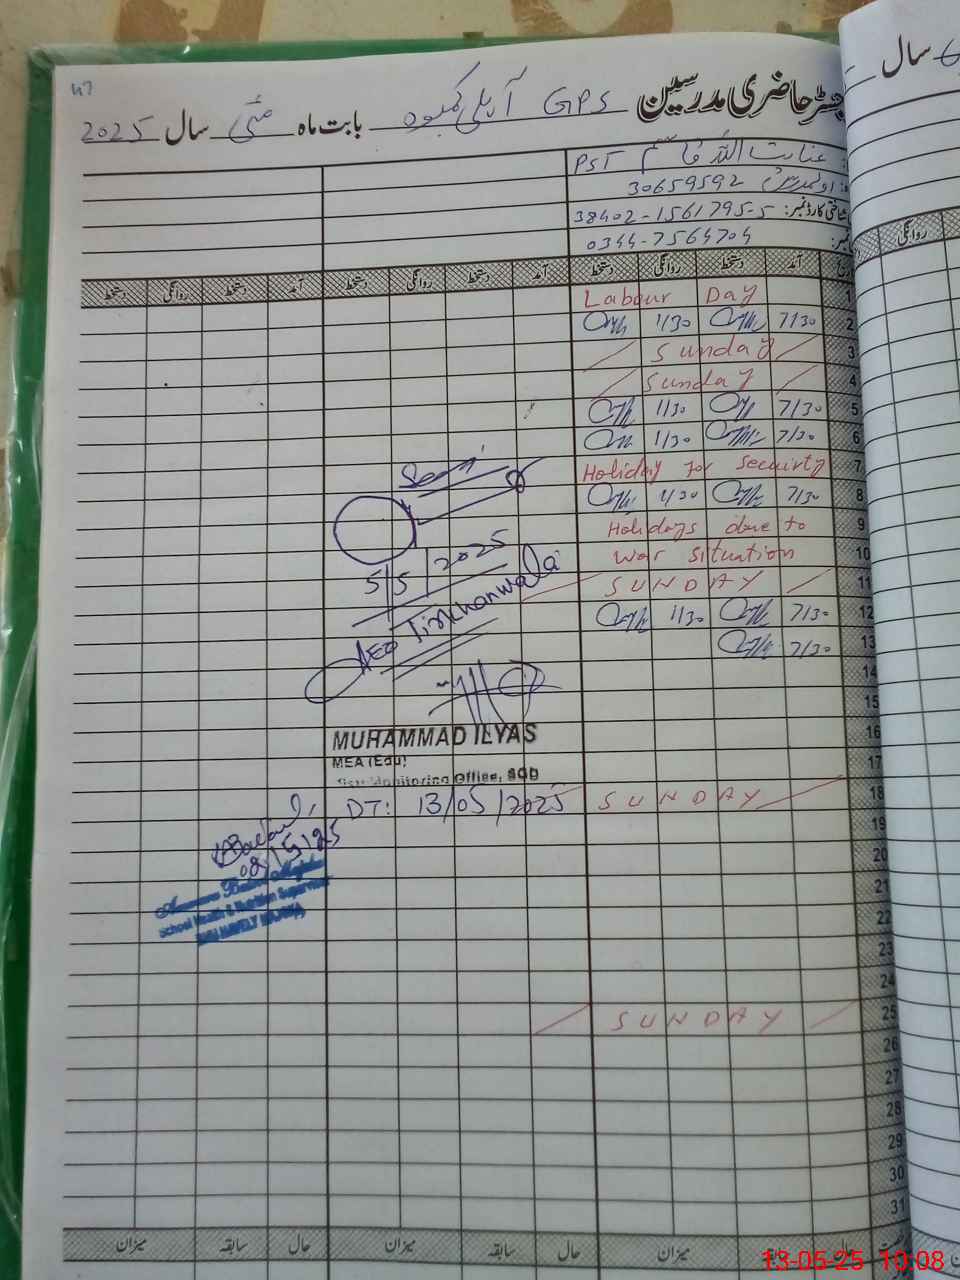 47
رجسٹر حاضری مدرسین GPS آرلی کمبوہ بابت ماہ مئی سال 2025
سال
عنایت اللہ قاسم PST
30659592
شناختی کارڈ نمبر: 38402-1561795-5
نمبر: 0344-7564704
آمد دستخط روانگی دستخط آمد دستخط روانگی دستخط آمد دستخط روانگی دستخط
روانگی
1 Labour Day
2 7/30 1/30
3 Sunday
4 Sunday
5 7/30 1/30
6 7/30 1/30
7 Holiday for Security
8 7/30 1/30
9 Holidays due to
10 War Situation
11 SUNDAY
12 7/30 1/30
13 7/30
14
15
16
17
18 SUNDAY
19
20
21
22
23
24
25 SUNDAY
26
27
28
29
30
31
5/5/2025
AEO Tirkhanwala
MUHAMMAD ILYAS
MEA (Edu)
Monitoring Office, SGD
DT: 13/05/2025
08/5/25
School Health & Nutrition Supervisor
حال میزان حال سابقہ میزان حال سابقہ میزان
13-05-25 10:08